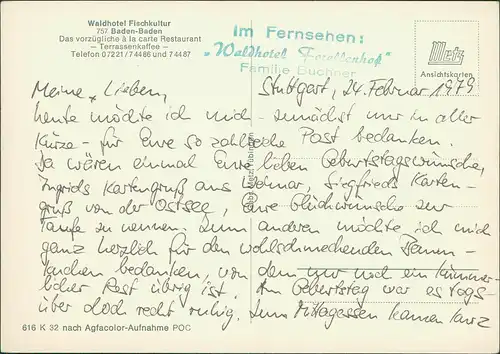 Waldhotel Fischkultur
757 Baden-Baden
Das vorzügliche à la carte Restaurant
— Terrassenkaffee —
Telefon 07221/74486 und 74487
Im Fernsehen:
„Waldhotel Forellenhof"
Familie Buchner
Metz
Ansichtskarten
Stuttgart, 24. Februar 1979
Meine Lieben,
heute möchte ich mich - zunächst nur in aller
Kürze - für Eure so zahlreiche Post bedanken.
Da wären einmal Eure lieben Geburtstagswünsche,
Ingrids Kartengruß aus Weimar, Siegfrieds Karten-
gruß von der Ostsee, Eure Glückwünsche zur
Taufe zu nennen. Zum anderen möchte ich mich
ganz herzlich für den wohlschmeckenden Baum-
kuchen bedanken, von dem nur noch ein kümmer-
licher Rest übrig ist. Am Geburtstag war es tags-
über doch recht ruhig. Zum Mittagessen kamen kurz
616 K 32 nach Agfacolor-Aufnahme POC